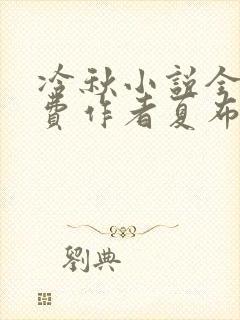 冷秋小説全
費作者夏布
劉典